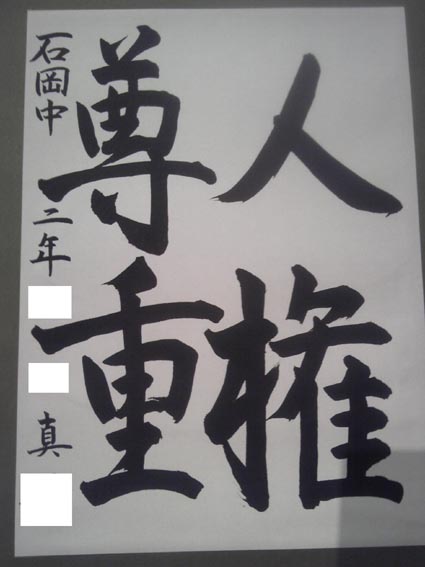 人権
尊重
石岡中 二年 真